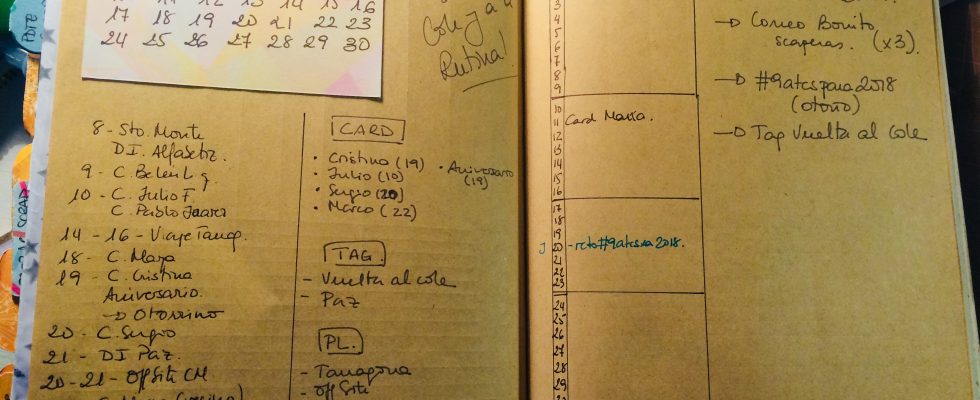 17 18 19 20 21 22 23
24 25 26 27 28 29 30
Cole y a la
Rutina!
8 - Sto. Monte
DI. Alfabetiz.
9 - C. Belen L. g.
10 - C. Julio F.
C. Pablo
14 - 16 - Viaje Tarrag.
18 - C. Maya
19 - C. Cristina
Aniversario.
→ Otorrino
20 - C. Sergio
21 - DI Paz.
20 - 21 - Off Site CM
CARD
• Cristina (19)
• Julio (10)
• Sergio (20)
• Marco (22)
• Aniversario
(19)
TAG.
- Vuelta al cole
- Paz
PL.
- Tarragona
- Off Site
3
4
5
6
7
8
9
10
11 Card María.
12
13
14
15
16
17
18
19
J 20 - reto #9atcspara2018.
21
22
23
24
25
26
27
28
29
→ Correo Bonito
scaperas. (x3)
→ #9atcspara2018
(otoño)
→ Tag Vuelta al Cole
PDTE
SCRAP